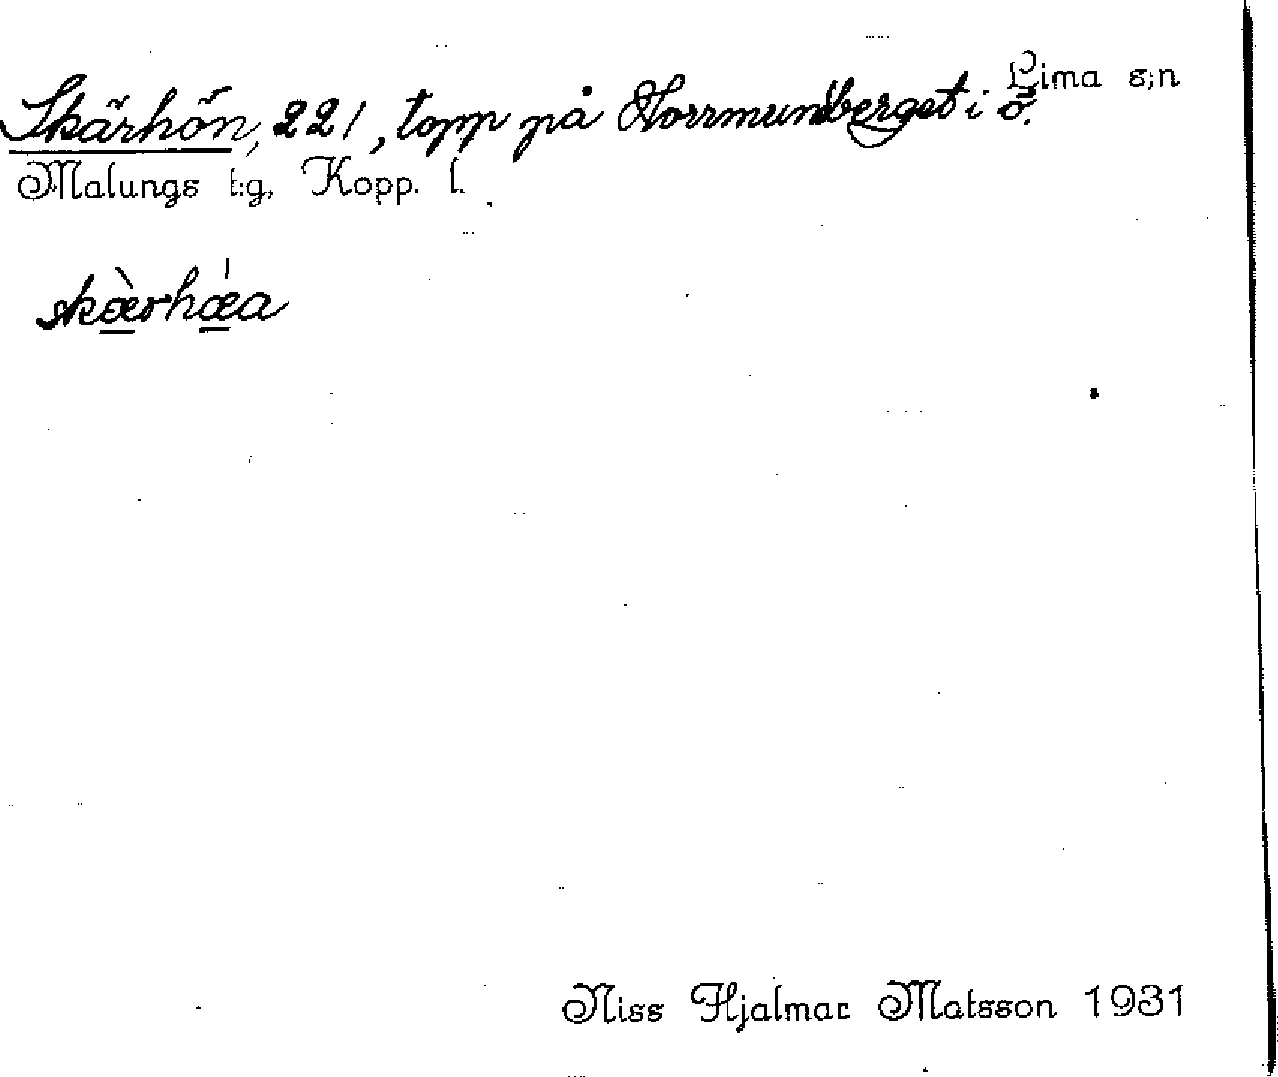 Skärhön, 221, topp på Norrmundberget i ö. Lima s;n
Malungs t:g, Kopp. l.
skæ̀rhǽa
Niss Hjalmar Matsson 1931